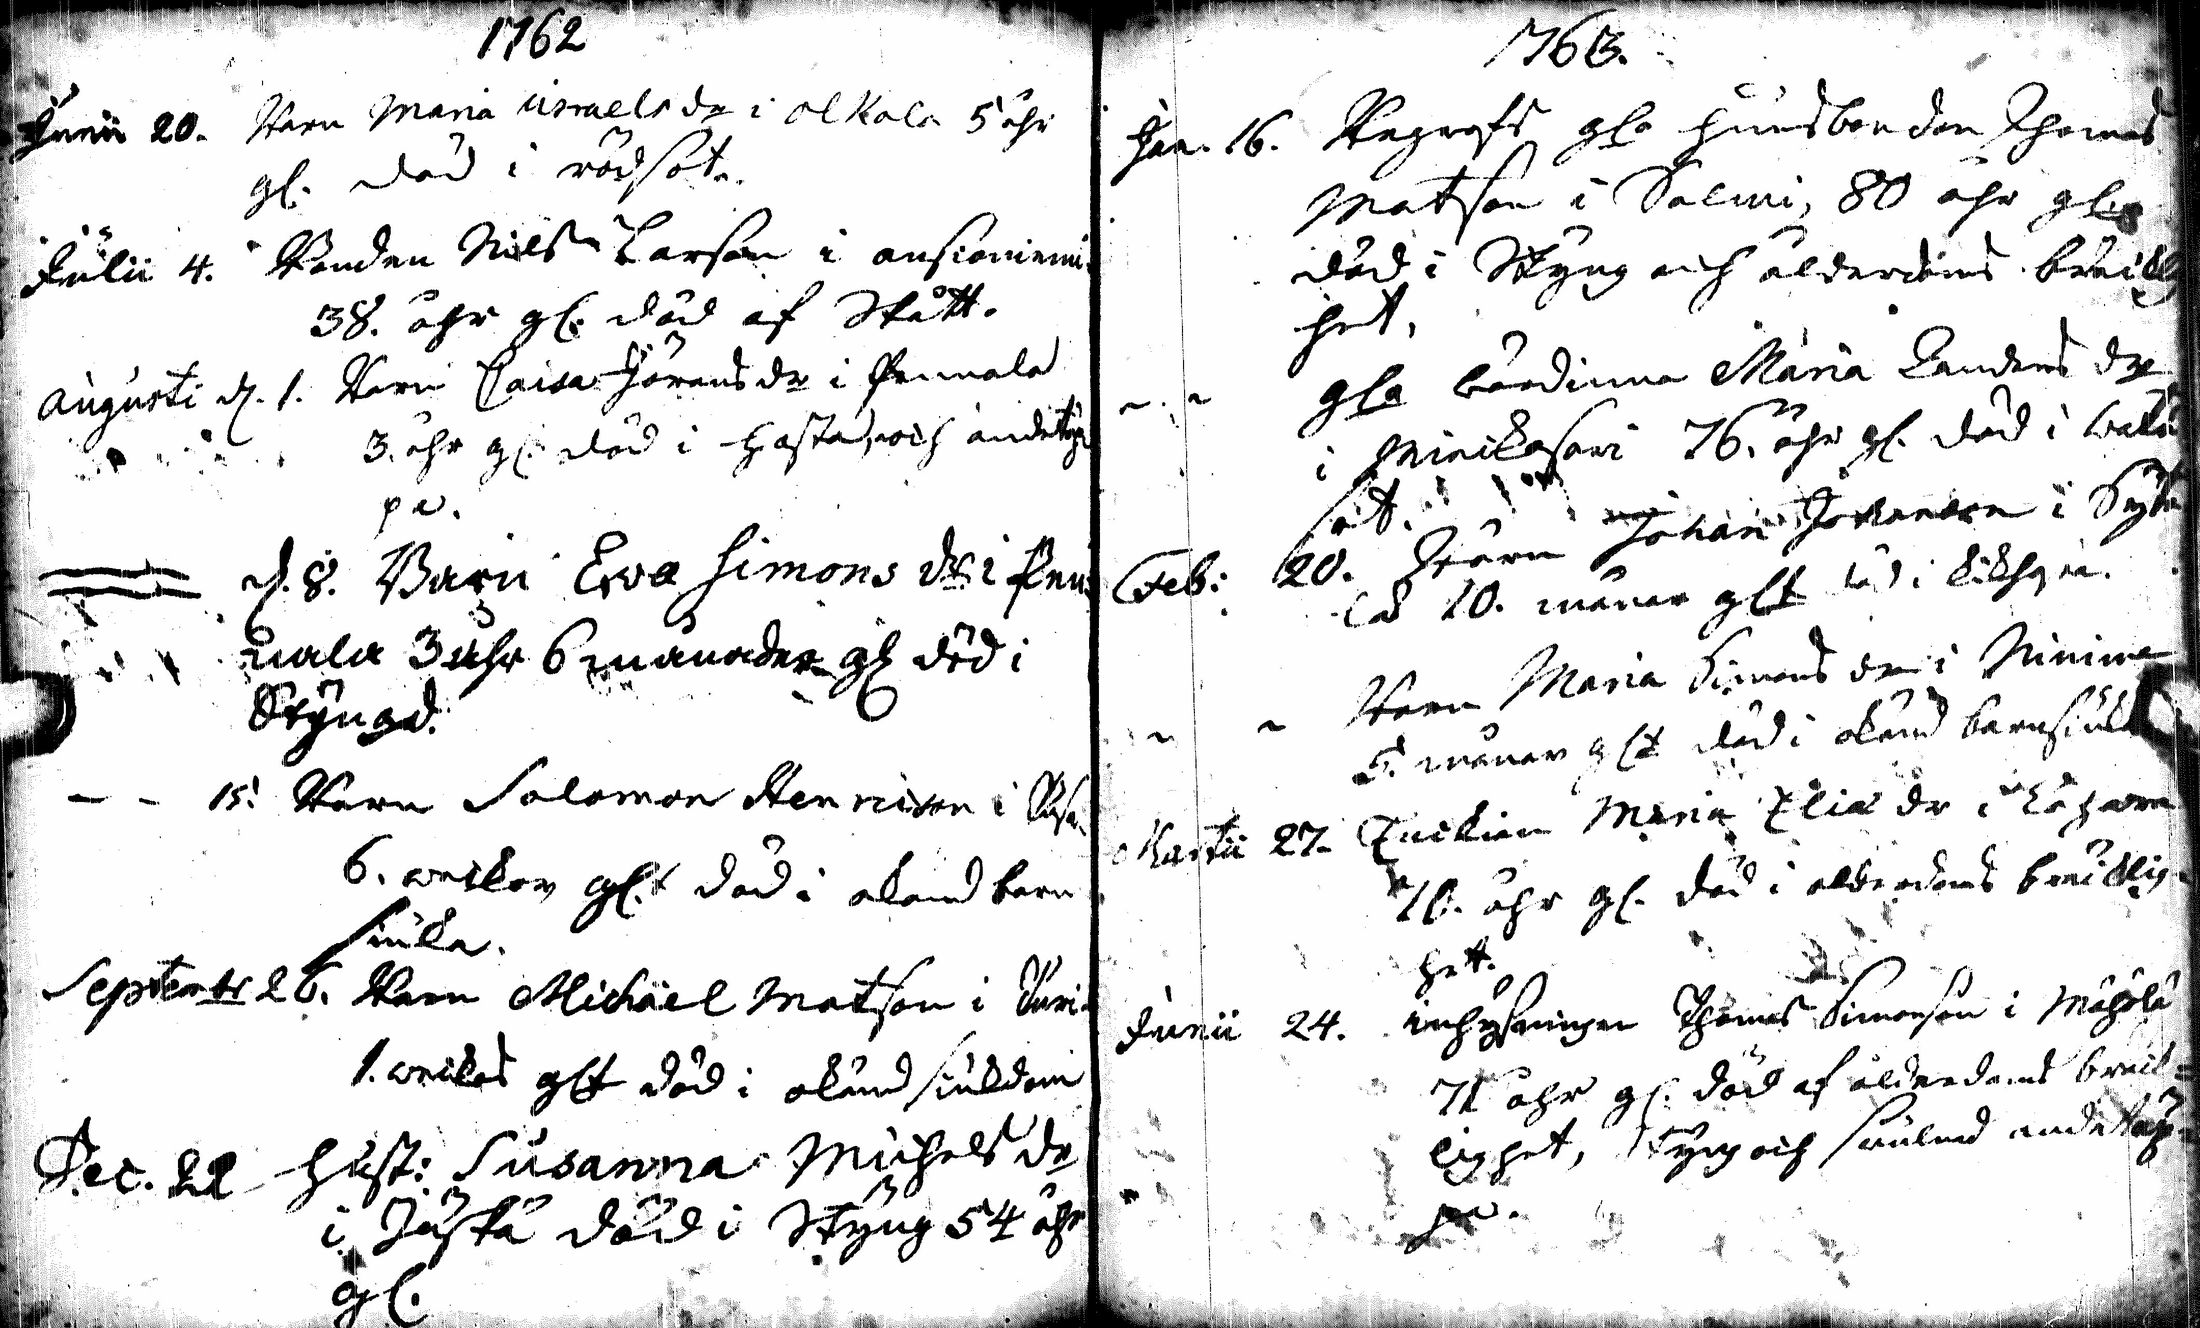 1762
Junii 20. Barn Maria Israels dr i Alkala 5 åhr
gl. död i rödsot.
Julii 4. Bonden Nils Larson i ansioniemi
38. åhr gl. död af Skått.
Augusti d. 1. Barn Caisa Jörans dr i Pennala
3. åhr gl. död i Hosta, och andetäp
pa.
d. 8. Barn Ewa Simons dr i Pen
nala 3 åhr 6 månader gl. död i
Styngd.
- - 15. Barn Salomon Henricson i
6. weckor glt död i okend barn
siuka.
Septembr 26. Barn Michael Matson i
1. weckas glt död i okänd siukdom
Dec. Hust: Susanna Michels dr
i död i Styng 54 åhr
gl.
1763.
Jan. 16. Begrofs gla husbonden Thomas
Matson i Salmi, 80 åhr gl.
död i Styng och ålderdoms bräckl
het,
gla wärdinna Maria dr
i Minikasari 76. åhr gl. död i
sot.
Feb: 20. Barn Johan Johanson i
10. månar glt död i kikhosta.
- - Barn Maria Simons dr i
5. månar glt död i okänd barnsiuka
Martii 27. Enckian Maria Elias dr i
70. åhr gl. död i ålderdoms bräcklig
het.
Junii 24. inhysningen Thomas Simonson i
71 åhr gl. död af ålderdoms bräck=
lighet, Styng och andetäp=
pa.